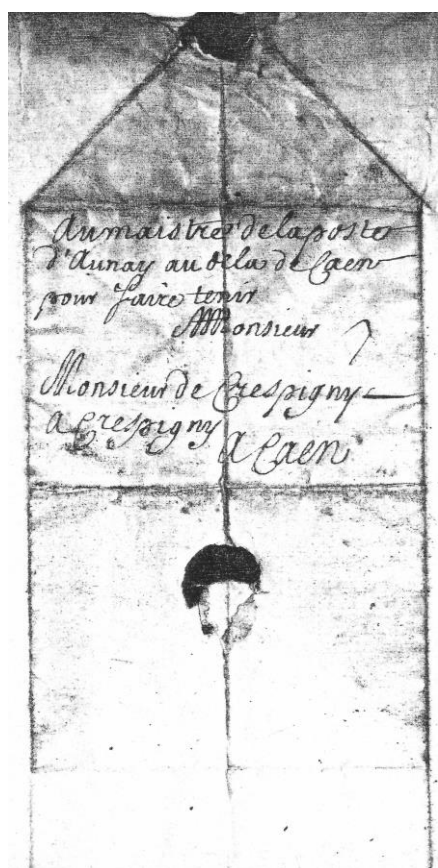 Au maistre de la poste
d'Aunay au dela de Caen
pour faire tenir
Monsieur
Monsieur de Crespigny
a Crespigny
A Caen